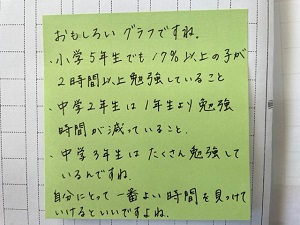 おもしろいグラフですね。
・小学5年生でも17%以上の子が
2時間以上勉強していること
・中学2年生は1年生より勉強
時間が減っていること.
・中学3年生はたくさん勉強して
いるんですね.
自分にとって一番よい時間を見つけて
いけるといいですよね.